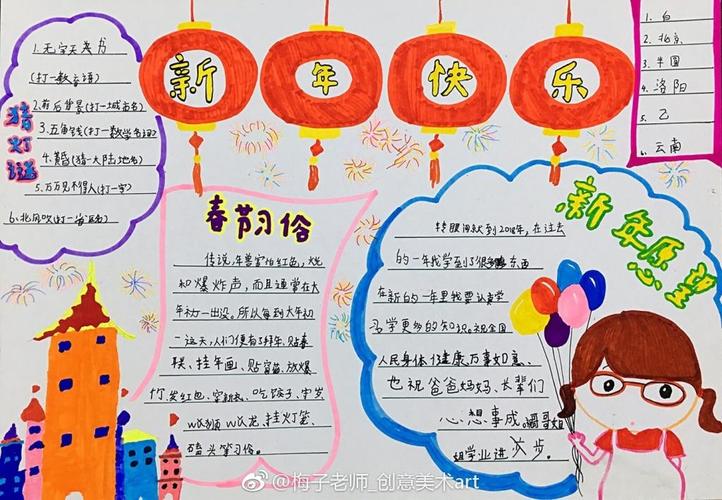 新年快乐
猜灯谜
1.无字天书
(打一数言语)
2.前后背景(打一城市名)
3.五角钱(打一数学名词)
4.黄昏(猜一大陆地名)
5.万万见不得人(打一字)
6.北风吹(打一省名)
1.白
2.北京
3.半圆
4.洛阳
5.乙
6.云南
春节习俗
传说,年兽害怕红色,火光
和爆炸声,而且通常在大
年初一出没。所以每到大年初
一这天,人们便有了拜年、贴春
联、挂年画、贴窗花、放爆
竹、发红包、穿新衣、吃饺子、守岁
舞狮舞龙、挂灯笼、
磕头等习俗。
新年愿望
转眼间就到2018年,在过去
的一年我学到了很多东西
在新的一年里我要认真学
习学更多的知识。祝全国
人民身体健康万事如意、
也祝爸爸妈妈、长辈们
心想事成
姐学业进步。
@梅子老师_创意美术art